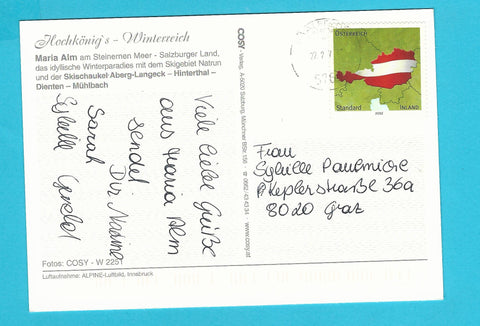 Hochkönig's – Winterreich
Maria Alm am Steinernen Meer - Salzburger Land,
das idyllische Winterparadies mit dem Skigebiet Natrun
und der Skischaukel Aberg-Langeck – Hinterthal –
Dienten – Mühlbach
Viele liebe Grüße
aus Maria Alm
sendet
Dir Nadine
Sarah
Sybille
Fotos: COSY - W 2251
Luftaufnahme: ALPINE-Luftbild, Innsbruck
COSY -Verlag, A-5020 Salzburg, Münchner BStr 156 0662/43 43 34 · www.cosy.at
ÖSTERREICH
Standard INLAND
Frau
Sybille
Keplerstraße 36a
8020 Graz